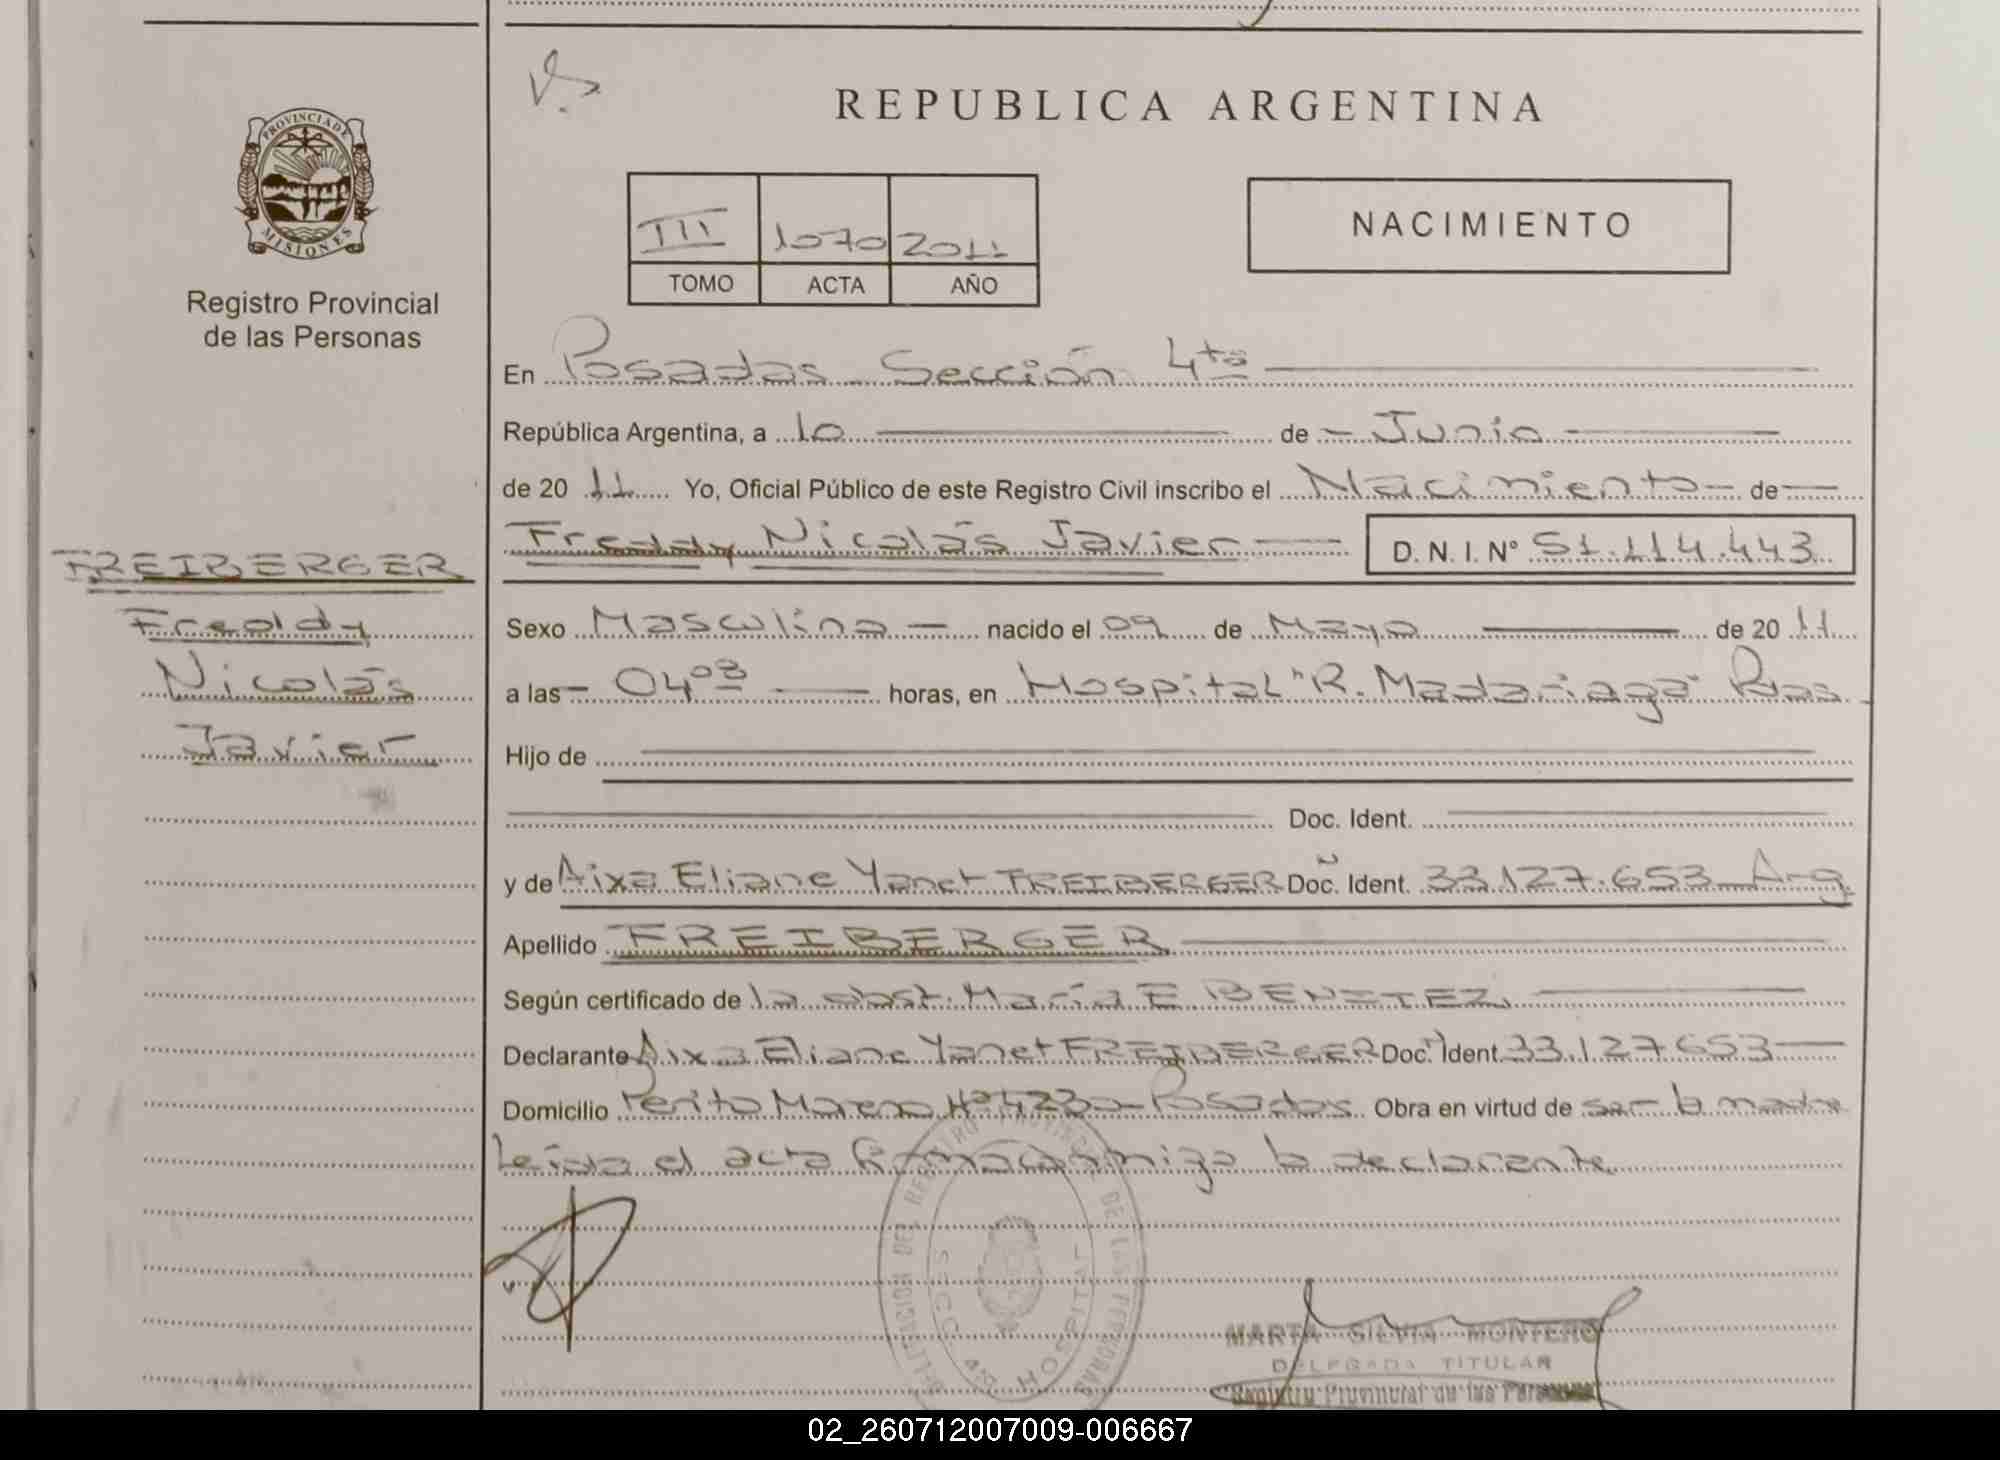 REPUBLICA ARGENTINA
PROVINCIA DE
MISIONES
Registro Provincial
de las Personas
III 1070 2011
TOMO ACTA AÑO
NACIMIENTO
En Posadas Sección 4ta
República Argentina, a 10 de Junio
de 2011 Yo, Oficial Público de este Registro Civil inscribo el Nacimiento de
Freddy Nicolás Javier D. N. I. N° 51.114.443
FREIBERGER
Freddy
Nicolás
Javier
Sexo Masculino nacido el 09 de Mayo de 2011
a las 04 08 horas, en Hospital "R. Madariaga" Pdas.
Hijo de
Doc. Ident.
y de Aixa Eliane Yanet FREIBERGER Doc. Ident. 33.127.653 Arg.
Apellido FREIBERGER
Según certificado de la obst. María E BENITEZ
Declarante Aixa Eliane Yanet FREIBERGER Doc. Ident. 33.127.653
Domicilio Perito Moreno Nº 4230 Posadas Obra en virtud de ser la madre
Leída el acta firma conmigo la declarante
DELEGACION DEL REGISTRO PROVINCIAL DE LAS PERSONAS
SECC. 4ta HOSPITAL
MARTA SILVIA MONTERO
DELEGADA TITULAR
Registro Provincial de las Personas
02_260712007009-006667